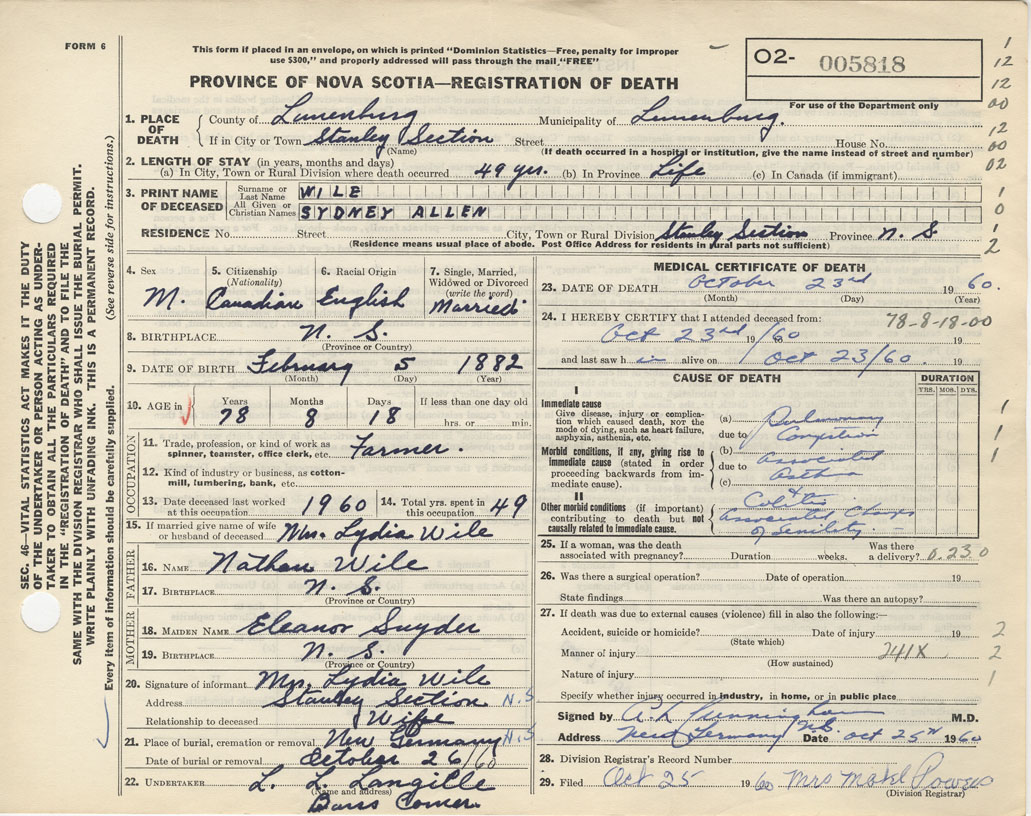 FORM 6
This form if placed in an envelope, on which is printed "Dominion Statistics—Free, penalty for improper
use $300," and properly addressed will pass through the mail "FREE"
PROVINCE OF NOVA SCOTIA—REGISTRATION OF DEATH
O2- 005818
For use of the Department only
1
12
12
00
12
00
02
1
0
2
SEC. 46—VITAL STATISTICS ACT MAKES IT THE DUTY
OF THE UNDERTAKER OR PERSON ACTING AS UNDER-
TAKER TO OBTAIN ALL THE PARTICULARS REQUIRED
IN THE "REGISTRATION OF DEATH" AND TO FILE THE
SAME WITH THE DIVISION REGISTRAR WHO SHALL ISSUE THE BURIAL PERMIT.
WRITE PLAINLY WITH UNFADING INK. THIS IS A PERMANENT RECORD.
Every item of information should be carefully supplied. (See reverse side for instructions.)
1. PLACE OF DEATH
County of Lunenburg Municipality of Lunenburg.
If in City or Town Stanley Section Street House No.
(Name) (If death occurred in a hospital or institution, give the name instead of street and number)
2. LENGTH OF STAY (in years, months and days)
(a) In City, Town or Rural Division where death occurred 49 yrs. (b) In Province Life (c) In Canada (if immigrant)
3. PRINT NAME OF DECEASED
Surname or Last Name WILE
All Given or Christian Names SYDNEY ALLEN
RESIDENCE No. Street City, Town or Rural Division Stanley Section Province N. S
(Residence means usual place of abode. Post Office Address for residents in rural parts not sufficient)
4. Sex M.
5. Citizenship (Nationality) Canadian
6. Racial Origin English
7. Single, Married, Widowed or Divorced (write the word) Married
8. BIRTHPLACE N. S.
(Province or Country)
9. DATE OF BIRTH February 5 1882
(Month) (Day) (Year)
10. AGE in Years 78 Months 8 Days 18 If less than one day old
hrs. or min.
OCCUPATION
11. Trade, profession, or kind of work as
spinner, teamster, office clerk, etc. Farmer.
12. Kind of industry or business, as cotton-
mill, lumbering, bank, etc.
13. Date deceased last worked at this occupation 1960
14. Total yrs. spent in this occupation 49
15. If married give name of wife
or husband of deceased Mrs. Lydia Wile
FATHER
16. NAME Nathan Wile
17. BIRTHPLACE N. S.
(Province or Country)
MOTHER
18. MAIDEN NAME Eleanor Snyder
19. BIRTHPLACE N. S.
(Province or Country)
20. Signature of informant Mrs. Lydia Wile
Address Stanley Section N.S
Relationship to deceased Wife
21. Place of burial, cremation or removal New Germany N.S.
Date of burial or removal October 26/60
22. UNDERTAKER L. L. Langille
(Name and address)
Barss Corner
MEDICAL CERTIFICATE OF DEATH
23. DATE OF DEATH October 23rd 1960.
(Month) (Day) (Year)
24. I HEREBY CERTIFY that I attended deceased from: 78-8-18-00
Oct 23rd 19/60 19
and last saw him alive on Oct 23/60 19
CAUSE OF DEATH
DURATION
YRS. MOS. DYS.
I
Immediate cause
Give disease, injury or complica-
tion which caused death, nor the
mode of dying, such as heart failure,
asphyxia, asthenia, etc.
(a) Pulmonary
due to Congestion
Morbid conditions, if any, giving rise to
immediate cause (stated in order
proceeding backwards from im-
mediate cause).
(b) Associated
due to
(c) Asthma
1
1
1
II
Other morbid conditions (if important)
contributing to death but not
causally related to immediate cause.
Colitis
Associated Changes
of senility.
25. If a woman, was the death
associated with pregnancy? Duration weeks. Was there a delivery? 0.230
26. Was there a surgical operation? Date of operation 19
State findings Was there an autopsy?
27. If death was due to external causes (violence) fill in also the following:—
Accident, suicide or homicide? Date of injury 19 2
(State which)
Manner of injury 241X 2
(How sustained)
Nature of injury 1
Specify whether injury occurred in industry, in home, or in public place
Signed by M.D.
Address New Germany N.S. Date Oct 25th 1960
28. Division Registrar's Record Number
29. Filed Oct 25 1960 Mrs Powers
(Division Registrar)